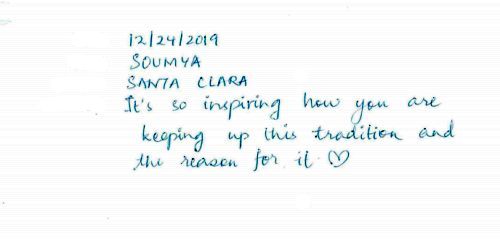 12/24/2019
SOUMYA
SANTA CLARA
It's so inspiring how you are
keeping up this tradition and
the reason for it ♡